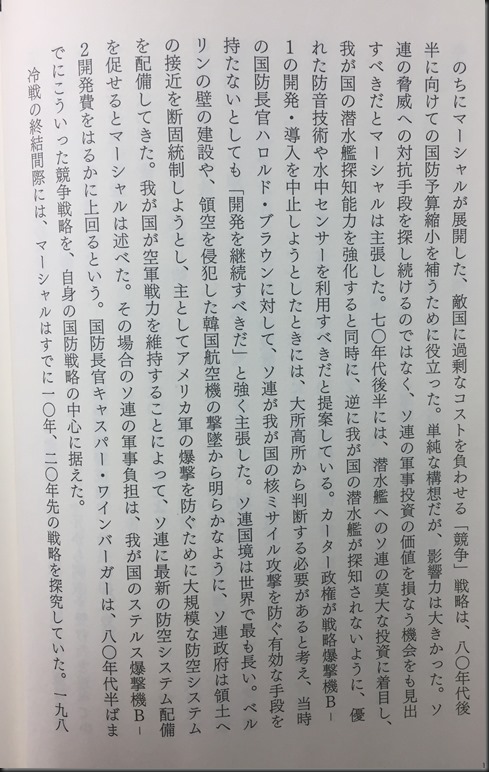 のちにマーシャルが展開した、敵国に過剰なコストを負わせる「競争」戦略は、八〇年代後
半に向けての国防予算縮小を補うために役立った。単純な構想だが、影響力は大きかった。ソ
連の脅威への対抗手段を探し続けるのではなく、ソ連の軍事投資の価値を損なう機会をも見出
すべきだとマーシャルは主張した。七〇年代後半には、潜水艦へのソ連の莫大な投資に着目し、
我が国の潜水艦探知能力を強化すると同時に、逆に我が国の潜水艦が探知されないように、優
れた防音技術や水中センサーを利用すべきだと提案している。カーター政権が戦略爆撃機B－
1の開発・導入を中止しようとしたときには、大所高所から判断する必要があると考え、当時
の国防長官ハロルド・ブラウンに対して、ソ連が我が国の核ミサイル攻撃を防ぐ有効な手段を
持たないとしても「開発を継続すべきだ」と強く主張した。ソ連国境は世界で最も長い。ベル
リンの壁の建設や、領空を侵犯した韓国航空機の撃墜から明らかなように、ソ連政府は領土へ
の接近を断固統制しようとし、主としてアメリカ軍の爆撃を防ぐために大規模な防空システム
を配備してきた。我が国が空軍戦力を維持することによって、ソ連に最新の防空システム配備
を促せるとマーシャルは述べた。その場合のソ連の軍事負担は、我が国のステルス爆撃機B－
2開発費をはるかに上回るという。国防長官キャスパー・ワインバーガーは、八〇年代半ばま
でにこういった競争戦略を、自身の国防戦略の中心に据えた。
冷戦の終結間際には、マーシャルはすでに一〇年、二〇年先の戦略を探究していた。一九八